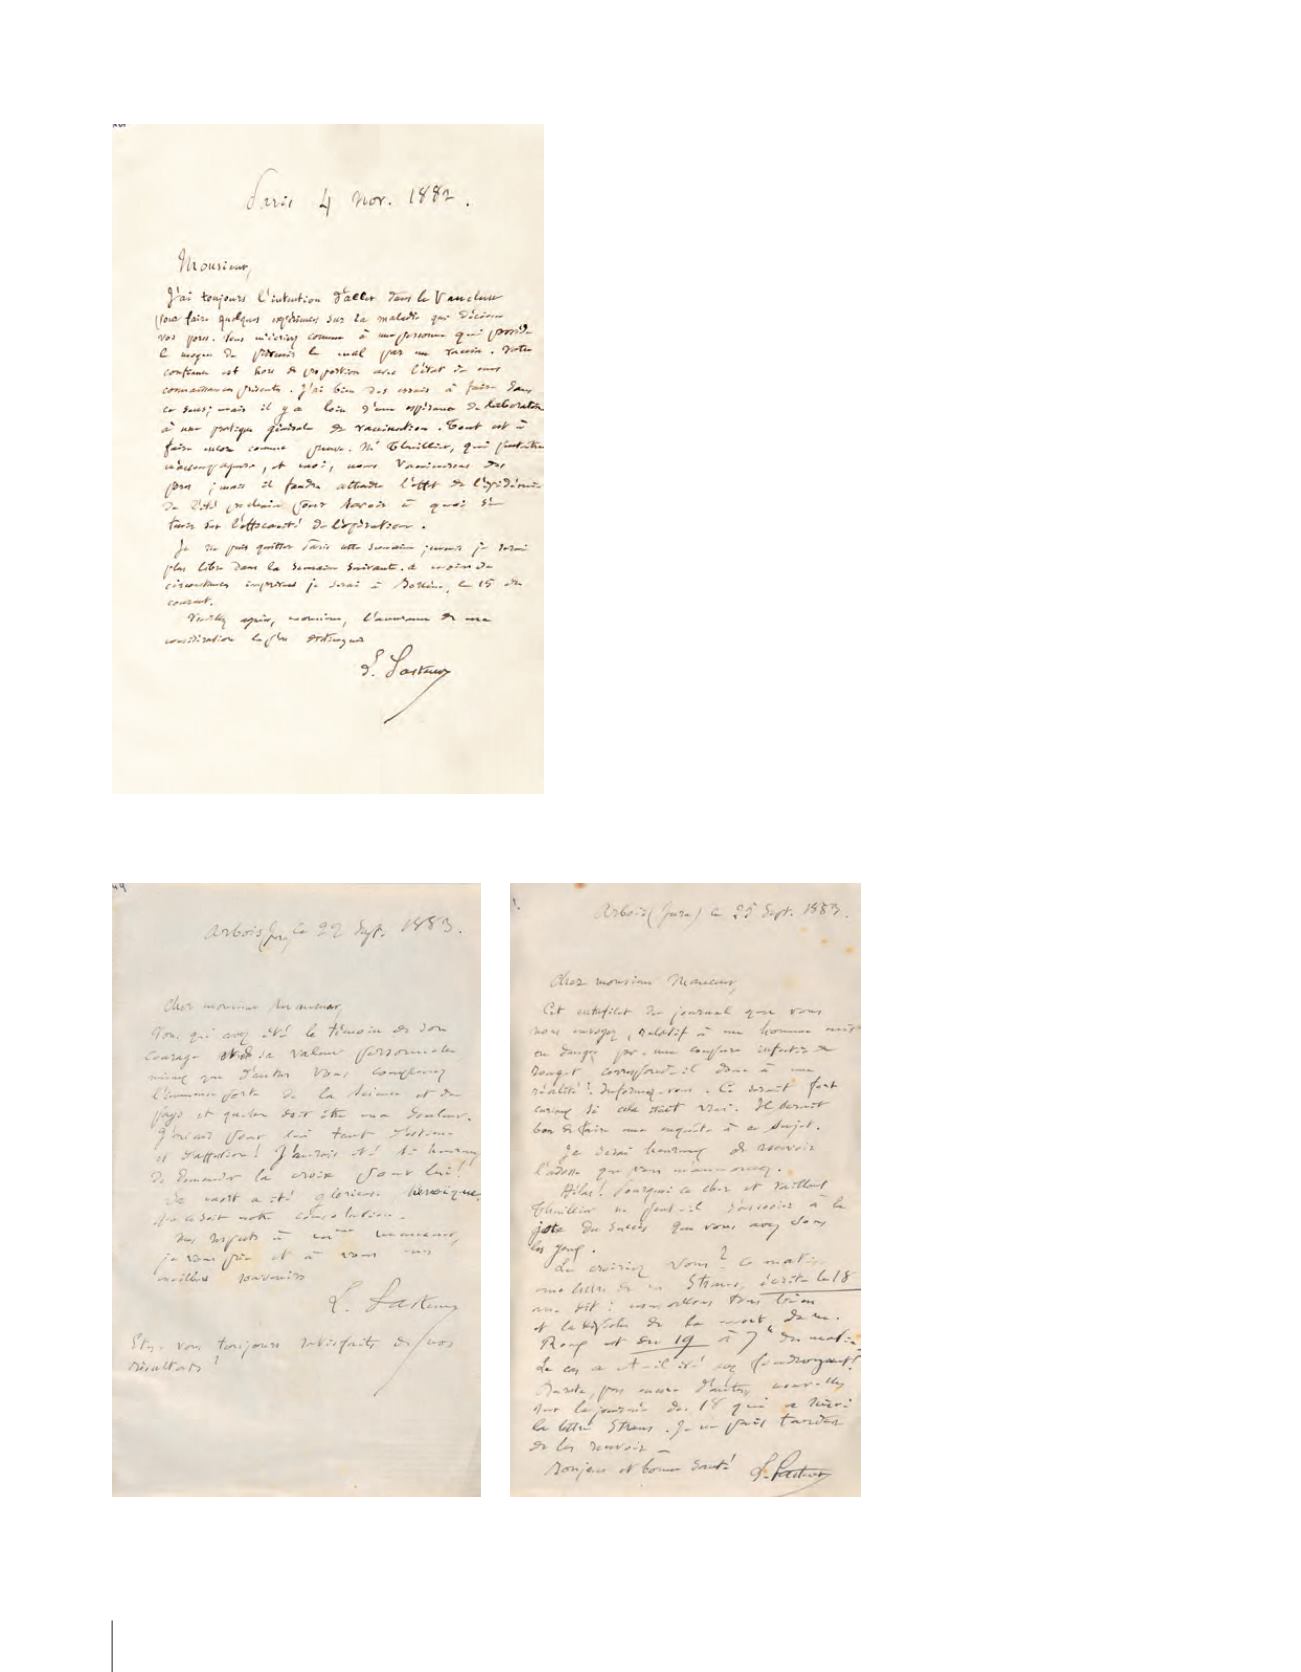 Paris 4 Nov. 1882.
Monsieur,
J'ai toujours l'intention d'aller dans le Vaucluse
pour faire quelques expériences sur la maladie qui décime
vos porcs. Vous m'écrivez comme à une personne qui possède
le moyen de prévenir le mal par un vaccin. Votre
confiance est hors de proportion avec l'état de mes
connaissances présentes. J'ai bien des essais à faire dans
ce sens; mais il y a loin d'une expérience de laboratoire
à une pratique générale de vaccination. Tout est à
faire encore comme preuve. Mr Thuillier, qui
m'accompagnera, et moi, nous vaccinerons des
porcs; mais il faudra attendre l'effet de l'épidémie
de l'été prochain pour savoir à quoi s'en
tenir sur l'efficacité de l'opération.
Je ne puis quitter Paris cette semaine; mais je serai
plus libre dans la semaine suivante. à moins de
circonstances imprévues je serai à Bollène, le 15 du
courant.
Veuillez agréer, monsieur, l'assurance de ma
considération la plus distinguée
L. Pasteur
Arbois (Jura) le 22 Sept. 1883.
Cher monsieur Maucuer,
Vous qui avez été le témoin de son
courage et de sa valeur personnelle
mieux que d'autres vous comprenez
l'immense perte de la science et du
pays et quelle doit être ma douleur.
J'avais pour lui tant d'estime
et d'affection! J'aurais été si heureux
de demander la croix pour lui!
Sa mort a été glorieuse, héroïque.
Que ce soit notre consolation.
Mes respects à Mme Maucuer,
je vous prie et à vous mes
meilleurs souvenirs
L. Pasteur
Etes-vous toujours satisfaits de vos
résultats?
Arbois (Jura) le 25 Sept. 1883.
Cher monsieur Maucuer,
Cet entrefilet de journal que vous
nous envoyez, relatif à un homme mis
en danger par une coupure infectée de
rouget correspond-il donc à une
réalité? Informez-vous. Ce serait fort
curieux si cela était vrai. Il serait
bon de faire une enquête à ce sujet.
Je serai heureux de recevoir
l'adresse que vous m'annoncez.
Hélas! Pourquoi ce cher et vaillant
Thuillier ne peut-il s'associer à la
joie du succès que vous avez dans
les porcs.
Le croiriez vous? ce matin
une lettre de M. Straus, écrite le 18
me dit: nous allons tous bien
et la dépêche de la mort de M.
Roux est du 19 à 7h du matin.
Le cas a-t-il été assez foudroyant!
Du reste, pas encore d'autres nouvelles
sur la journée du 18 qui a suivi
la lettre Straus. Je ne puis tarder
de les recevoir
Bonjour et bonne santé L. Pasteur